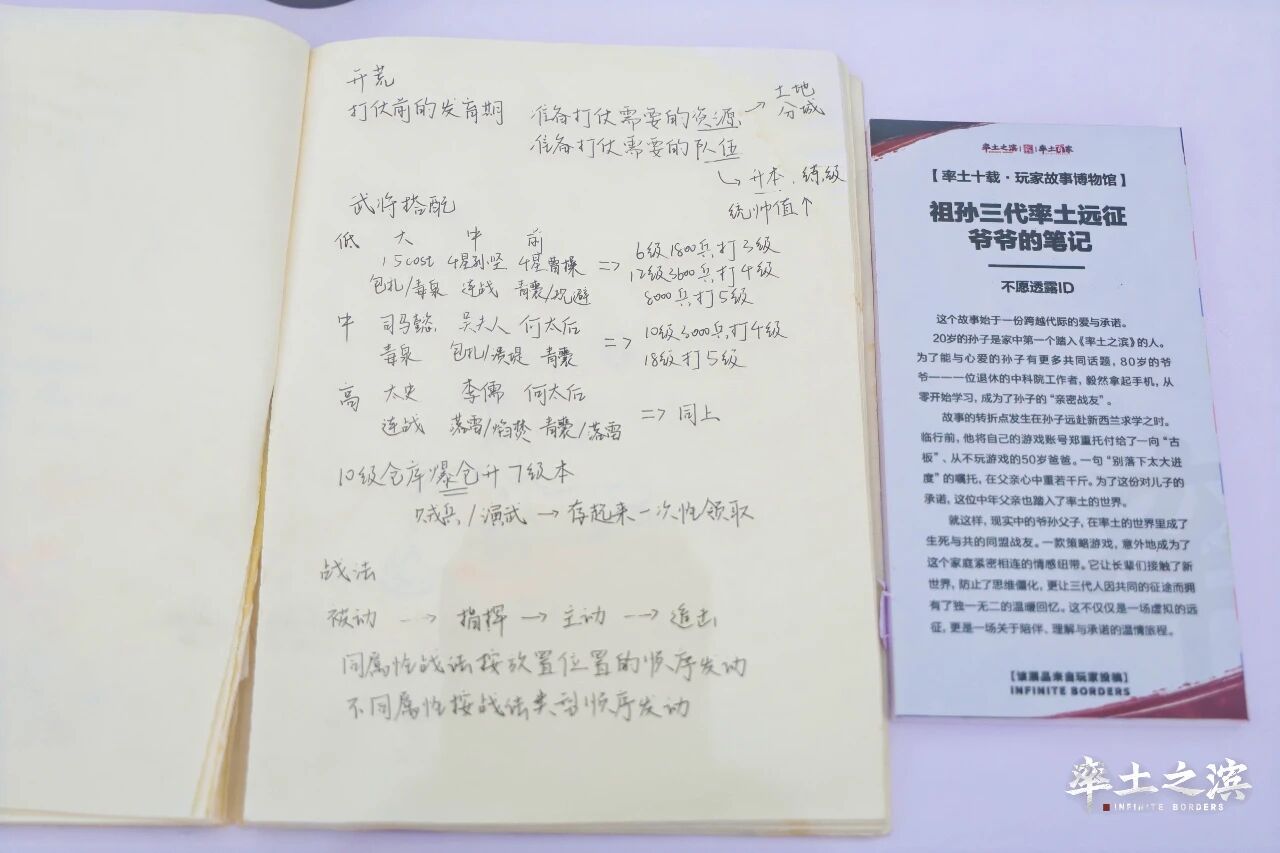 开荒
打仗前的发育期 准备打仗需要的资源 → 土地 分城
准备打仗需要的队伍
↳ 升本、练级
统帅值↑
武将搭配
低 大 中 前
15cost 4星孙坚 4星曹操 => 6级1800兵打3级
包扎/毒泉 连战 青囊/规避 12级3600兵打4级
8000兵打5级
中 司马懿 吴夫人 何太后 => 10级3000兵打4级
毒泉 包扎/溃堤 青囊 18级打5级
高 太史 李儒 何太后 => 同上
连战 落雷/焰焚 青囊/落雷
10级仓库爆仓升7级本
贼兵/演武 → 存起来一次性领取
战法
被动 → 指挥 → 主动 → 追击
同属性战法按放置位置的顺序发动
不同属性按战法类型顺序发动
率土之滨 率土
【率土十载·玩家故事博物馆】
祖孙三代率土远征
爷爷的笔记
不愿透露ID
这个故事始于一份跨越代际的爱与承诺。
20岁的孙子是家中第一个踏入《率土之滨》的人。
为了能与心爱的孙子有更多共同话题，80岁的爷
爷——一位退休的中科院工作者，毅然拿起手机，从
零开始学习，成为了孙子的“亲密战友”。
故事的转折点发生在孙子远赴新西兰求学之时。
临行前，他将自己的游戏账号郑重托付给了一向“古
板”、从不玩游戏的50岁爸爸。一句“别落下太大进
度”的嘱托，在父亲心中重若千斤。为了这份对儿子的
承诺，这位中年父亲也踏入了率土的世界。
就这样，现实中的爷孙父子，在率土的世界里成了
生死与共的同盟战友。一款策略游戏，意外地成为了
这个家庭紧密相连的情感纽带。它让长辈们接触了新
世界，防止了思维僵化，更让三代人因共同的征途而拥
有了独一无二的温暖回忆。这不仅仅是一场虚拟的远
征，更是一场关于陪伴、理解与承诺的温情旅程。
【该展品来自玩家投稿】
INFINITE BORDERS
率土之滨
INFINITE BORDERS